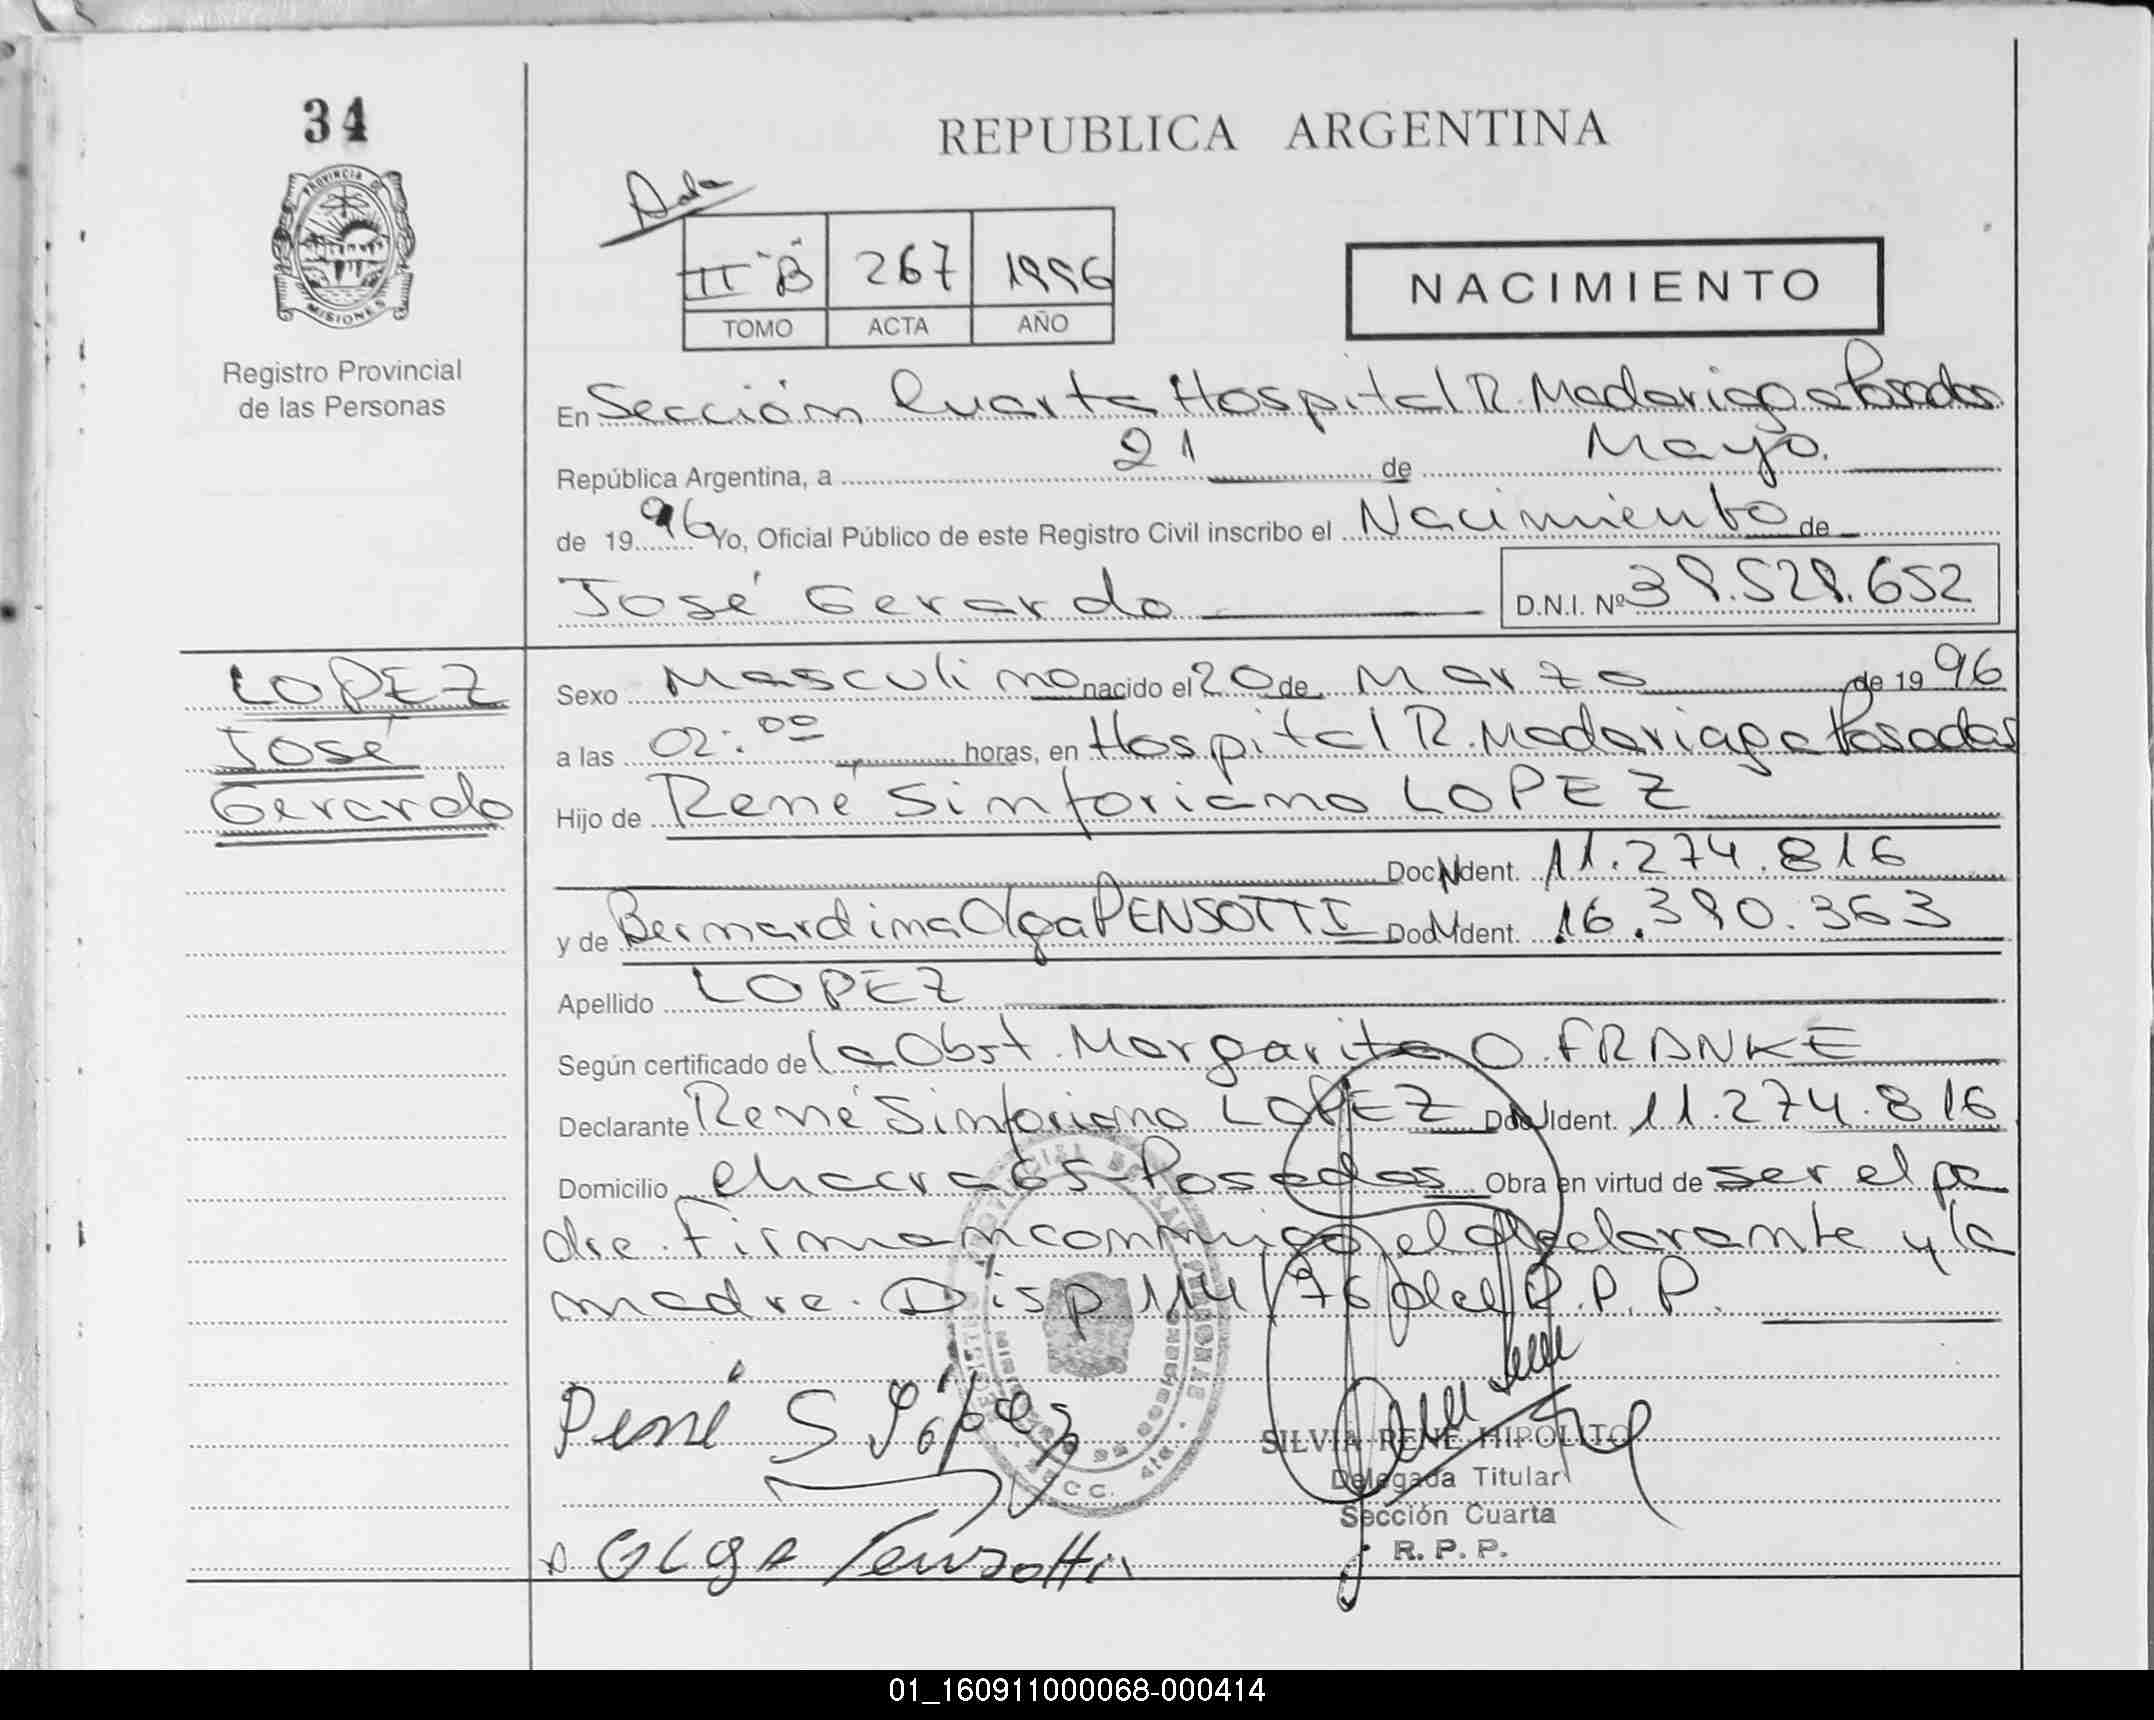 34
REPUBLICA ARGENTINA
PROVINCIA DE
MISIONES
Registro Provincial
de las Personas
II "B" 267 1996
TOMO ACTA AÑO
NACIMIENTO
En Sección Cuarta Hospital R. Madariaga Posadas
República Argentina, a 21 de Mayo.
de 1996 Yo, Oficial Público de este Registro Civil inscribo el Nacimiento de
José Gerardo D.N.I. Nº 39.529.652
LOPEZ
José
Gerardo
Sexo Masculino nacido el 20 de Marzo de 1996
a las 02:00 horas, en Hospital R. Madariaga Posadas
Hijo de René Sinforiano LOPEZ
Doc. Ident. 11.274.816
y de Bernardina Olga PENSOTTI Doc. Ident. 16.390.363
Apellido LOPEZ
Según certificado de la Obst. Margarita O. FRANKE
Declarante René Sinforiano LOPEZ Doc. Ident. 11.274.816
Domicilio chacra 65 Posadas Obra en virtud de ser el pa
dre. Firman conmigo el declarante y la
madre. Disp 114/76 del R.P.P.
René S López
SILVIA RENE HIPOLITO
Delegada Titular
Sección Cuarta
R. P. P.
Olga Pensotti
01_160911000068-000414